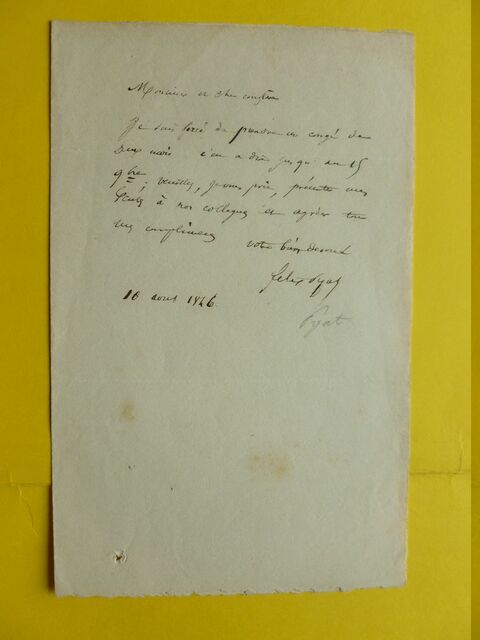 Monsieur et cher confrère
Je suis forcé de prendre un congé de
Deux mois c'en a dire jusqu'au 15
9bre. veuillez, je vous prie, présenter mes
à nos collegues et agréer tous
mes complimens
votre bien Devoué
felix Pyat
10 aout 1846.
Pyat